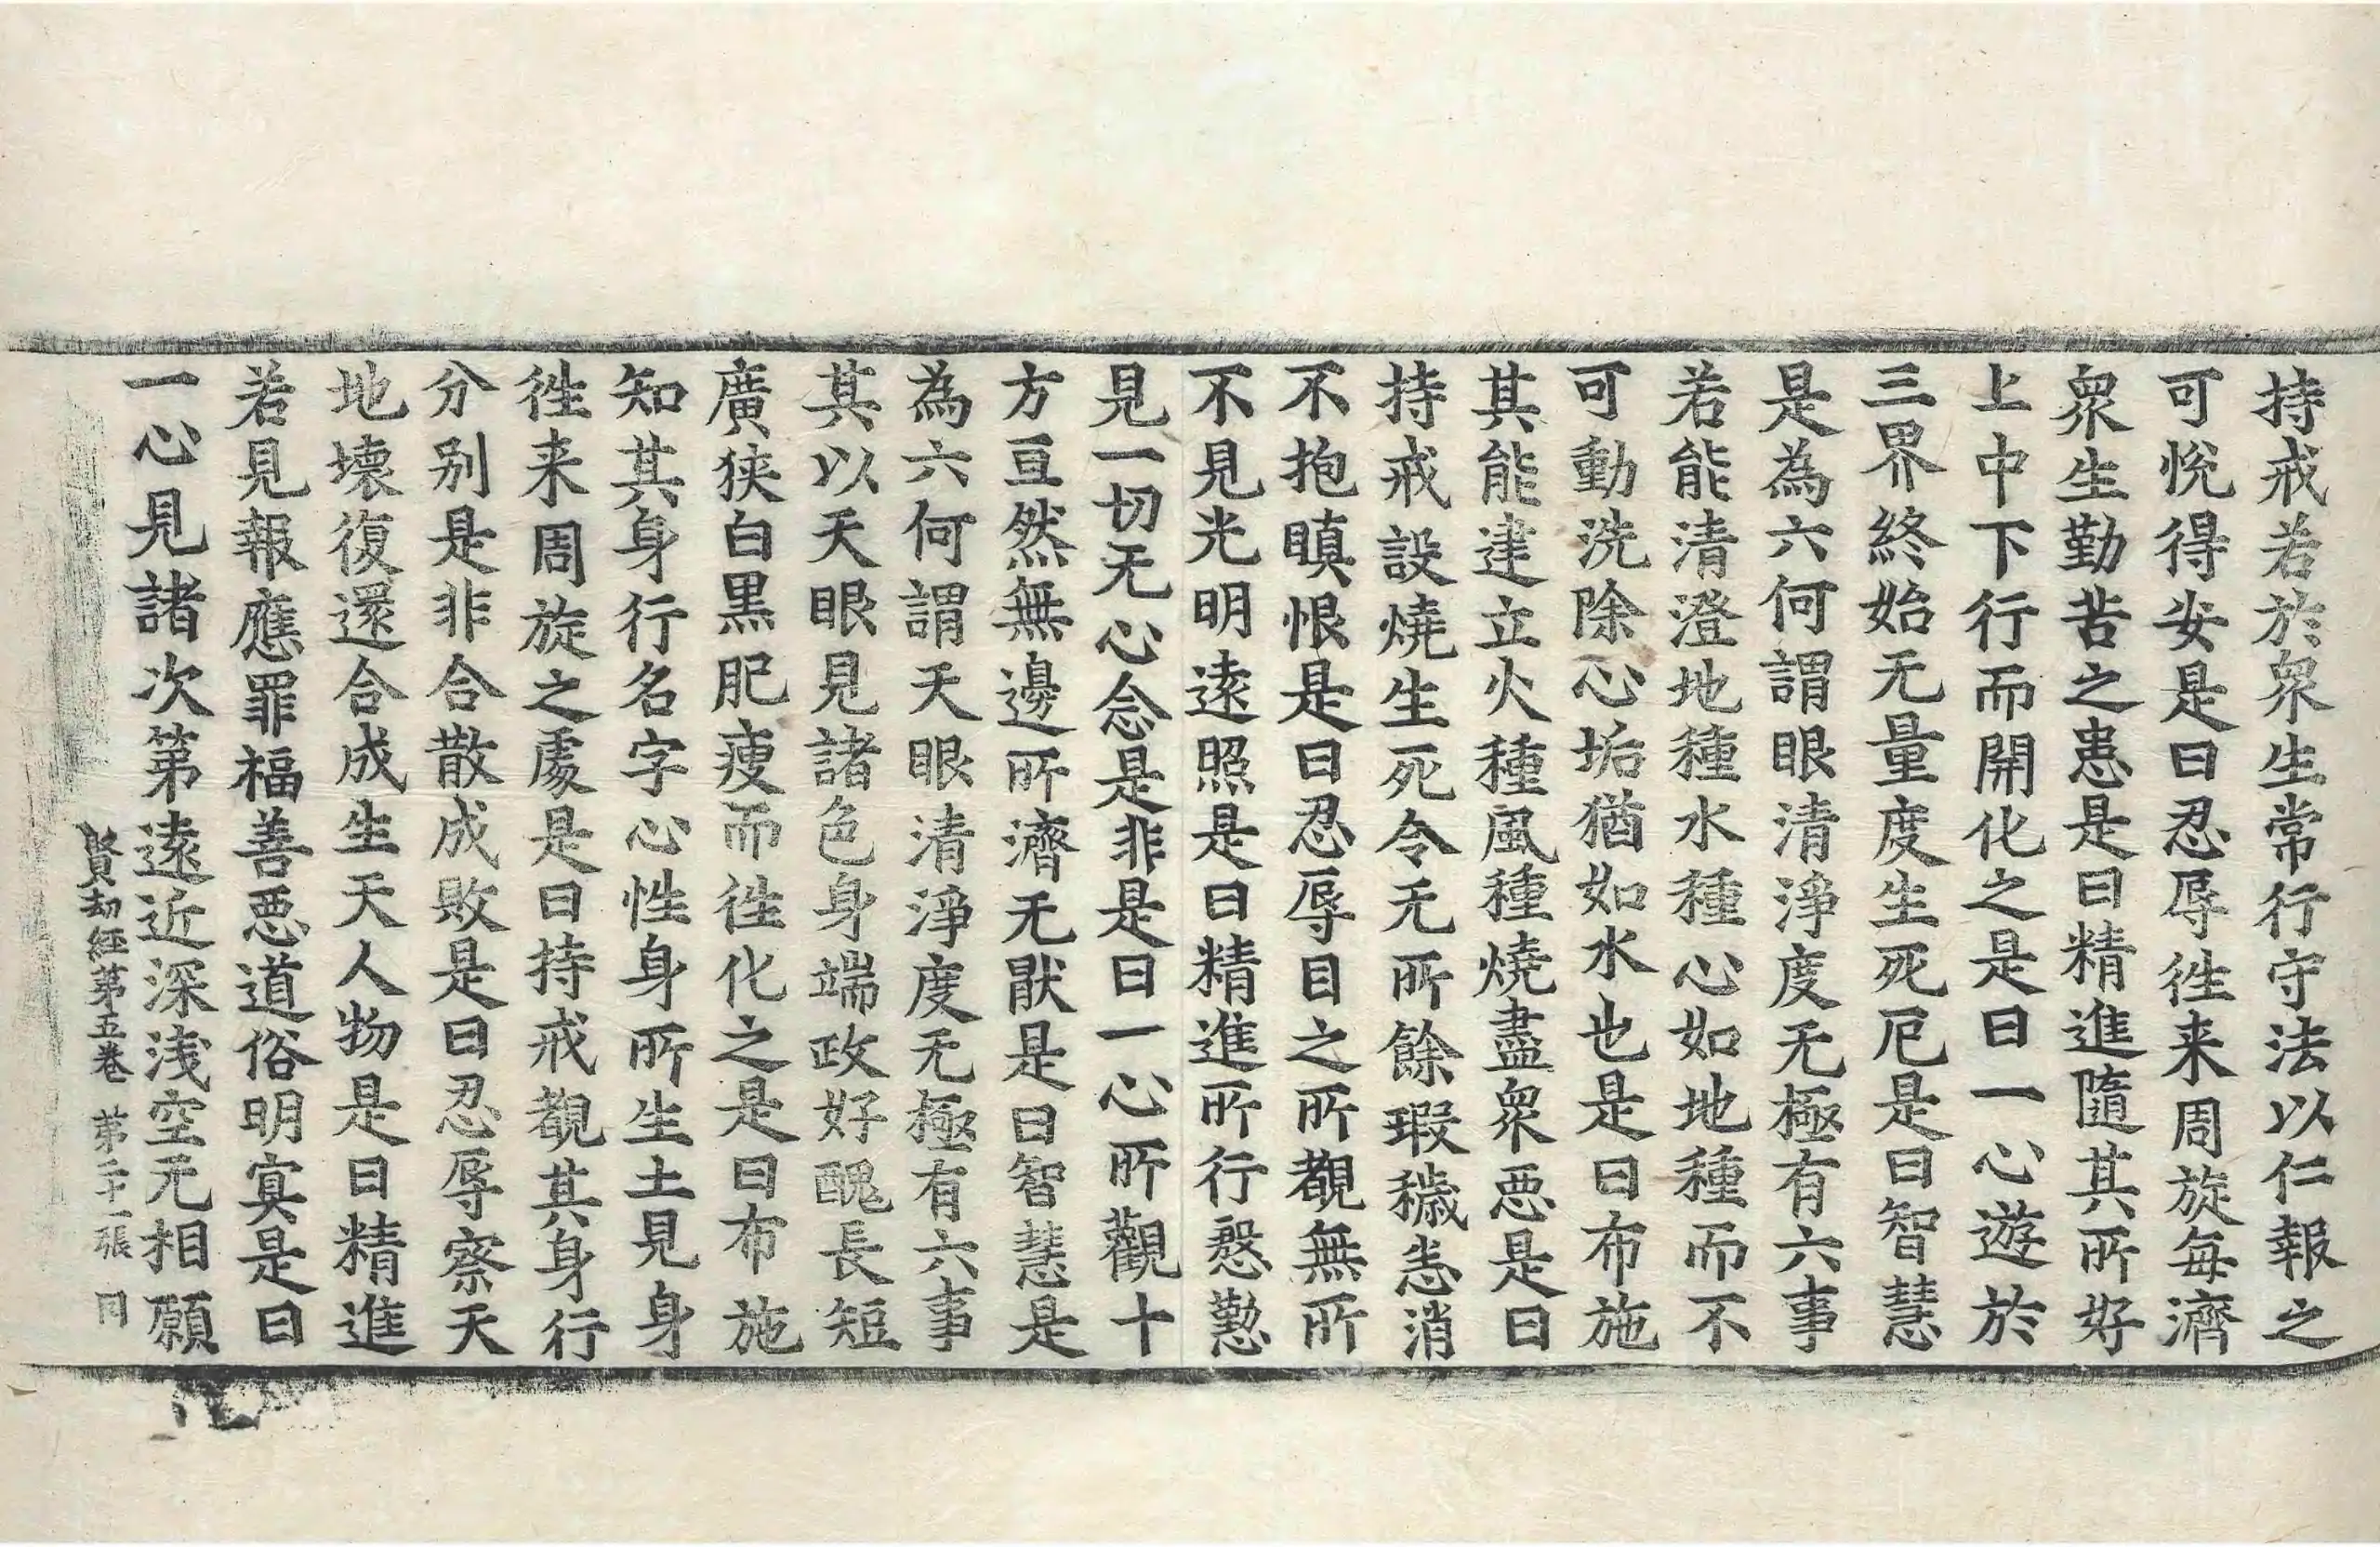 持戒若於衆生常行守法以仁報之
可悅得安是曰忍辱徃来周旋每濟
衆生勤苦之患是曰精進隨其所好
上中下行而開化之是曰一心遊於
三界終始无量度生死厄是曰智慧
是為六何謂眼清淨度无極有六事
若能清澄地種水種心如地種而不
可動洗除心垢猶如水也是曰布施
其能建立火種風種燒盡衆惡是曰
持戒設燒生死令无所餘瑕穢恚消
不抱瞋恨是曰忍辱目之所覩無所
不見光明遠照是曰精進所行慇懃
見一切无心念是非是曰一心所觀十
方亘然無邊所濟无猒是曰智慧是
為六何謂天眼清淨度无極有六事
其以天眼見諸色身端政好醜長短
廣狹白黒肥瘦而徃化之是曰布施
知其身行名字心性身所生土見身
徃来周旋之處是曰持戒觀其身行
分别是非合散成敗是曰忍辱察天
地壊復還合成生天人物是曰精進
若見報應罪福善惡道俗明冥是曰
一心見諸次第遠近深浅空无相願
賢劫經第五卷 第二十一張 同